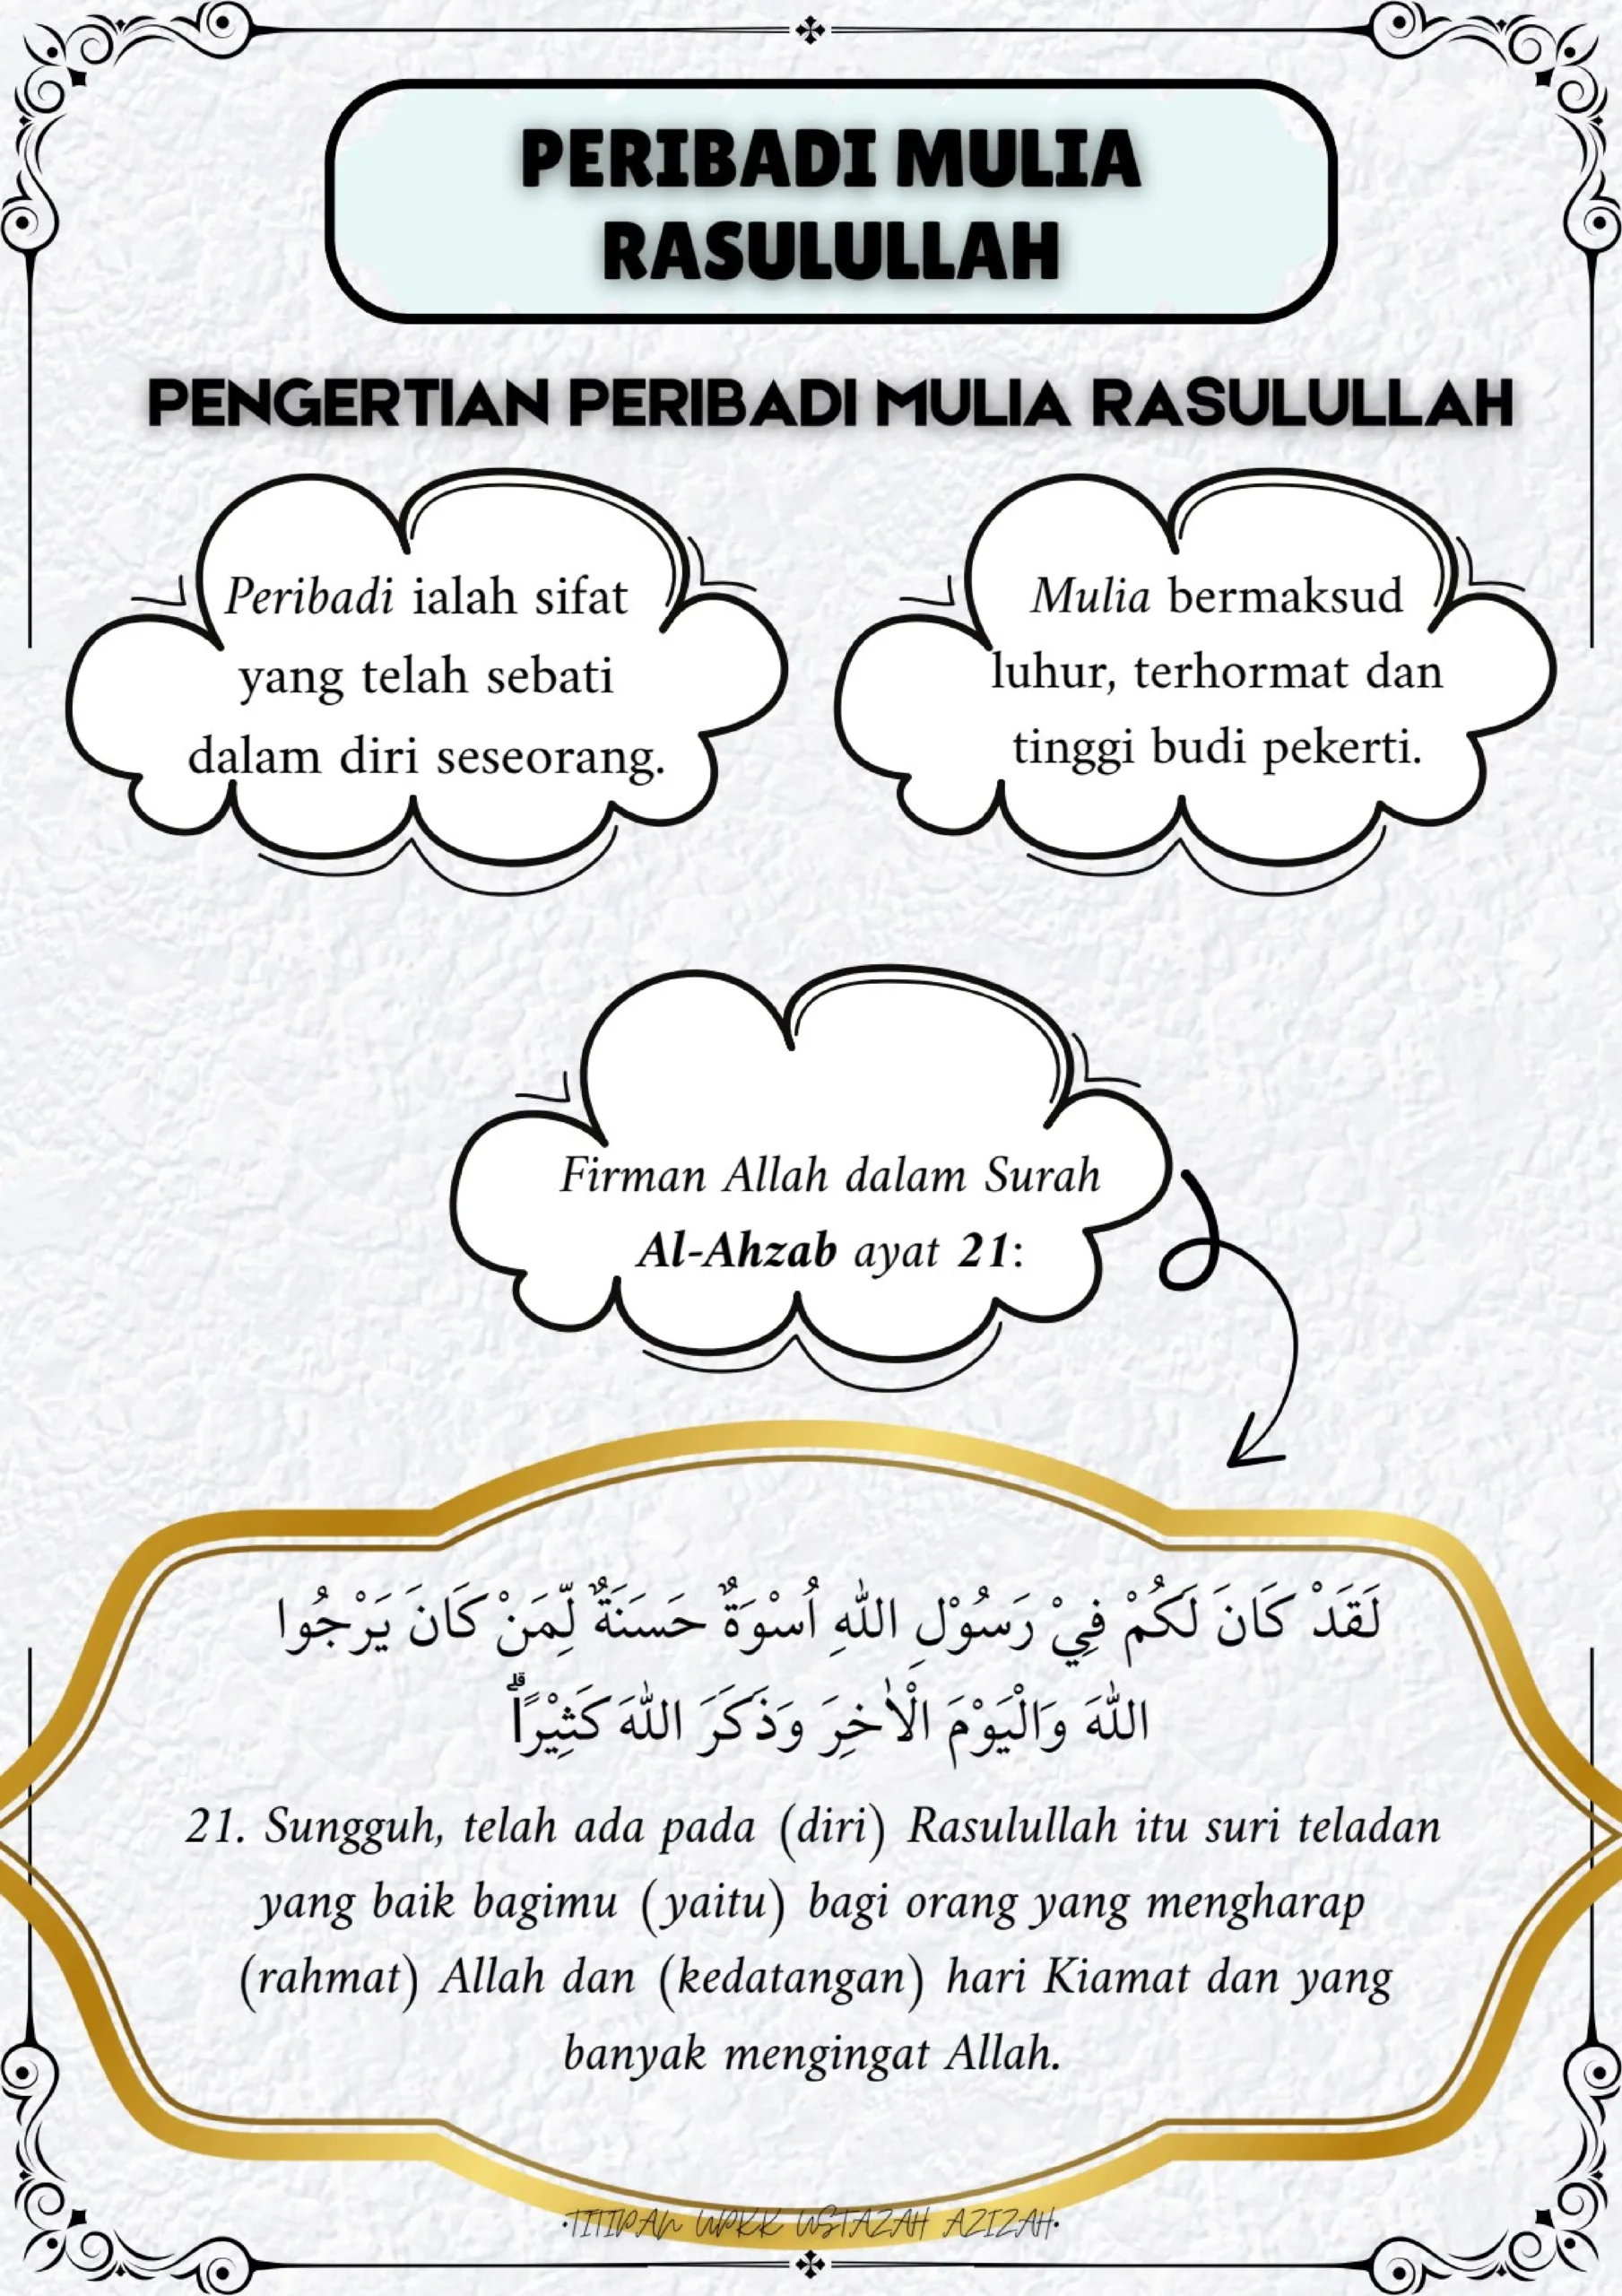 PERIBADI MULIA
RASULULLAH
PENGERTIAN PERIBADI MULIA RASULULLAH
Peribadi ialah sifat
yang telah sebati
dalam diri seseorang.
Mulia bermaksud
luhur, terhormat dan
tinggi budi pekerti.
Firman Allah dalam Surah
Al-Ahzab ayat 21:
لَقَدْ كَانَ لَكُمْ فِيْ رَسُوْلِ اللّٰهِ اُسْوَةٌ حَسَنَةٌ لِّمَنْ كَانَ يَرْجُوا
اللّٰهَ وَالْيَوْمَ الْاٰخِرَ وَذَكَرَ اللّٰهَ كَثِيْرًاۗ
21. Sungguh, telah ada pada (diri) Rasulullah itu suri teladan
yang baik bagimu (yaitu) bagi orang yang mengharap
(rahmat) Allah dan (kedatangan) hari Kiamat dan yang
banyak mengingat Allah.
•TITIPAN UPKK USTAZAH AZIZAH•